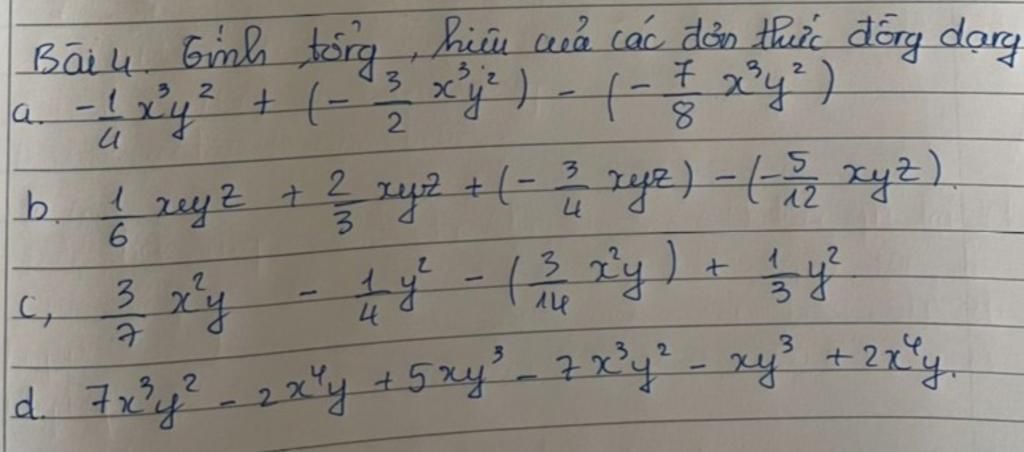 Bài 4. Tính tổng, hiệu của các đơn thức đồng dạng
a. -1/4 x³y² + (-3/2 x³y²) - (-7/8 x³y²)
b. 1/6 xyz + 2/3 xyz + (-3/4 xyz) - (-5/12 xyz).
c, 3/7 x²y - 1/4 y² - (3/14 x²y) + 1/3 y²
d. 7x³y² - 2x⁴y + 5xy³ - 7x³y² - xy³ + 2x⁴y.